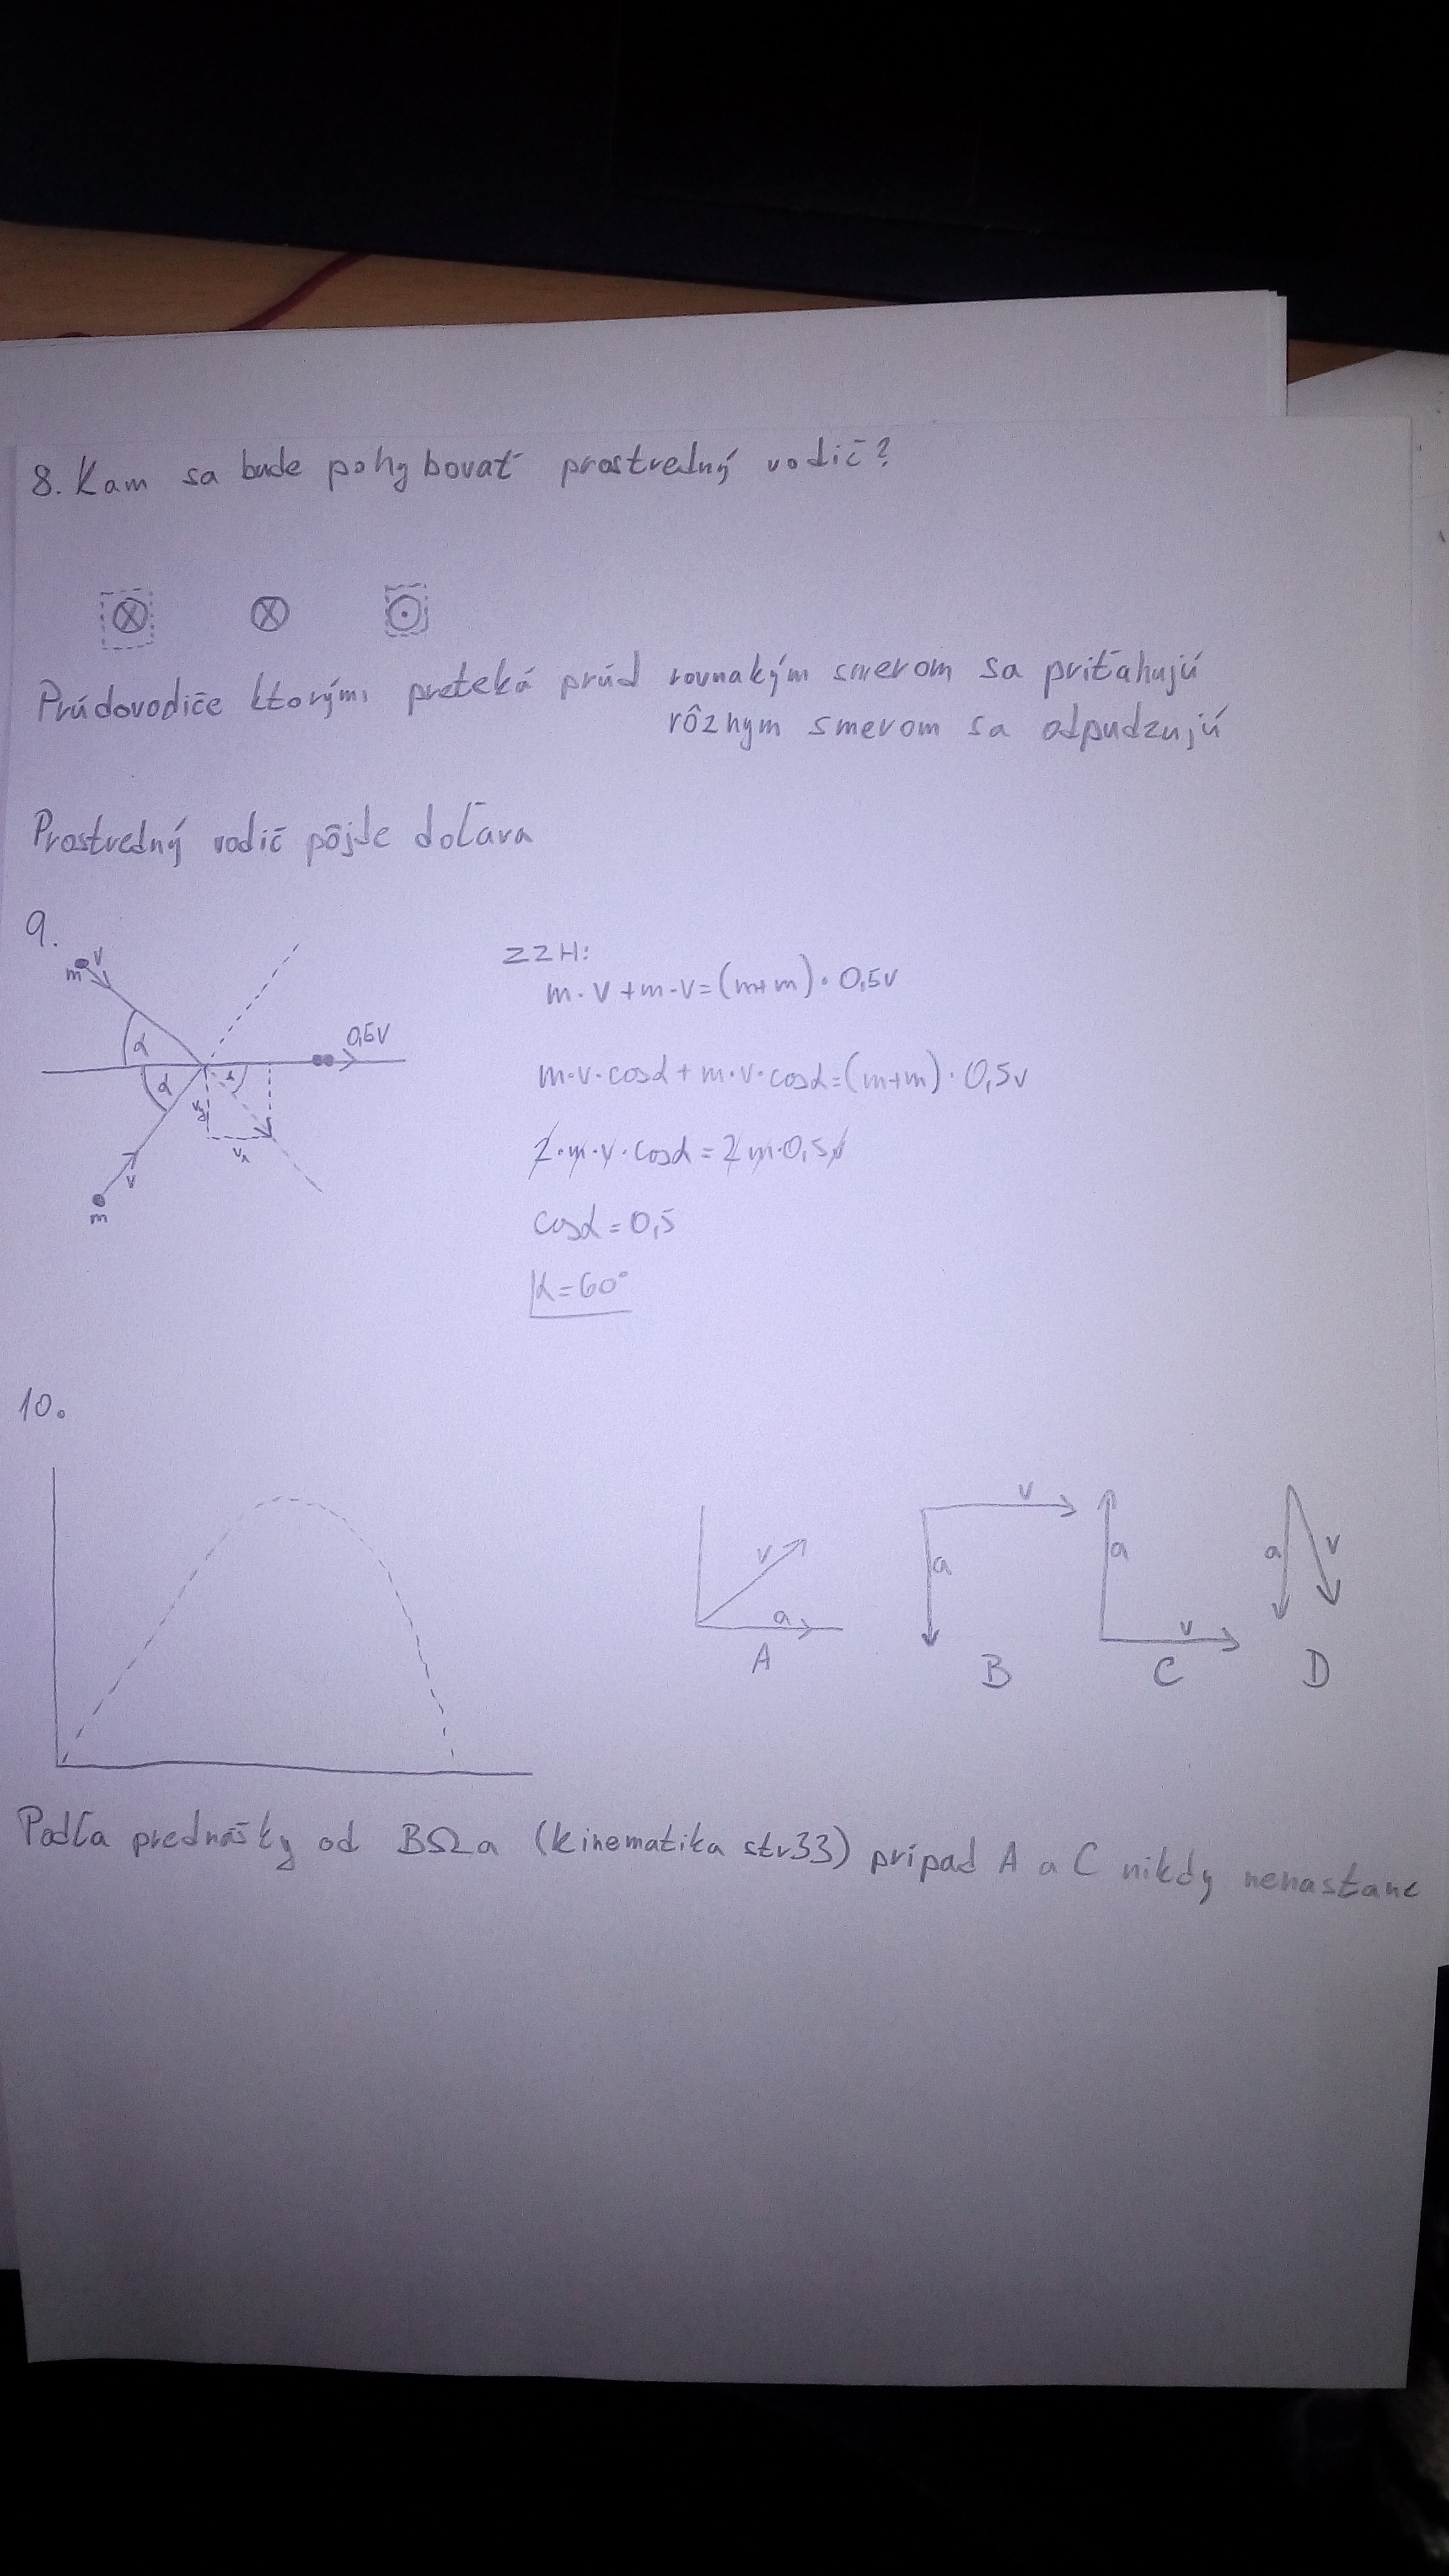 8. Kam sa bude pohybovať prostredný vodič?
Prúdovodiče ktorými preteká prúd rovnakým smerom sa priťahujú
rôznym smerom sa odpudzujú
Prostredný vodič pôjde doľava
9.
m v
α
0,5v
α
α
vy
vx
v
m
ZZH:
m·v+m·v=(m+m)·0,5v
m·v·cosα+m·v·cosα=(m+m)·0,5v
2·m·v·cosα=2m·0,5v
cosα=0,5
α=60°
10.
v
a
A
v
a
B
a
v
C
a
v
D
Podľa prednášky od BΩa (kinematika str33) prípad A a C nikdy nenastane